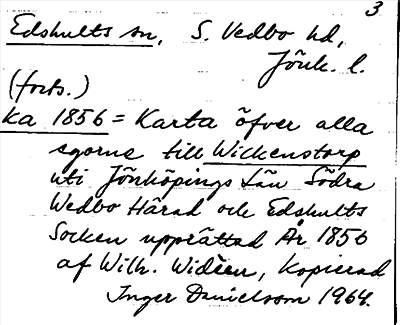 3
Edshults sn, S. Vedbo hd,
Jönk. l.
(forts.)
Ka 1856 = Karta öfver alla
egorne till Wickenstorp
uti Jönköpings Län Södra
Wedbo Härad och Edshults
Socken upprättad År 1856
af Wilh. Widéen, kopierad
Inger Danielsson 1964.